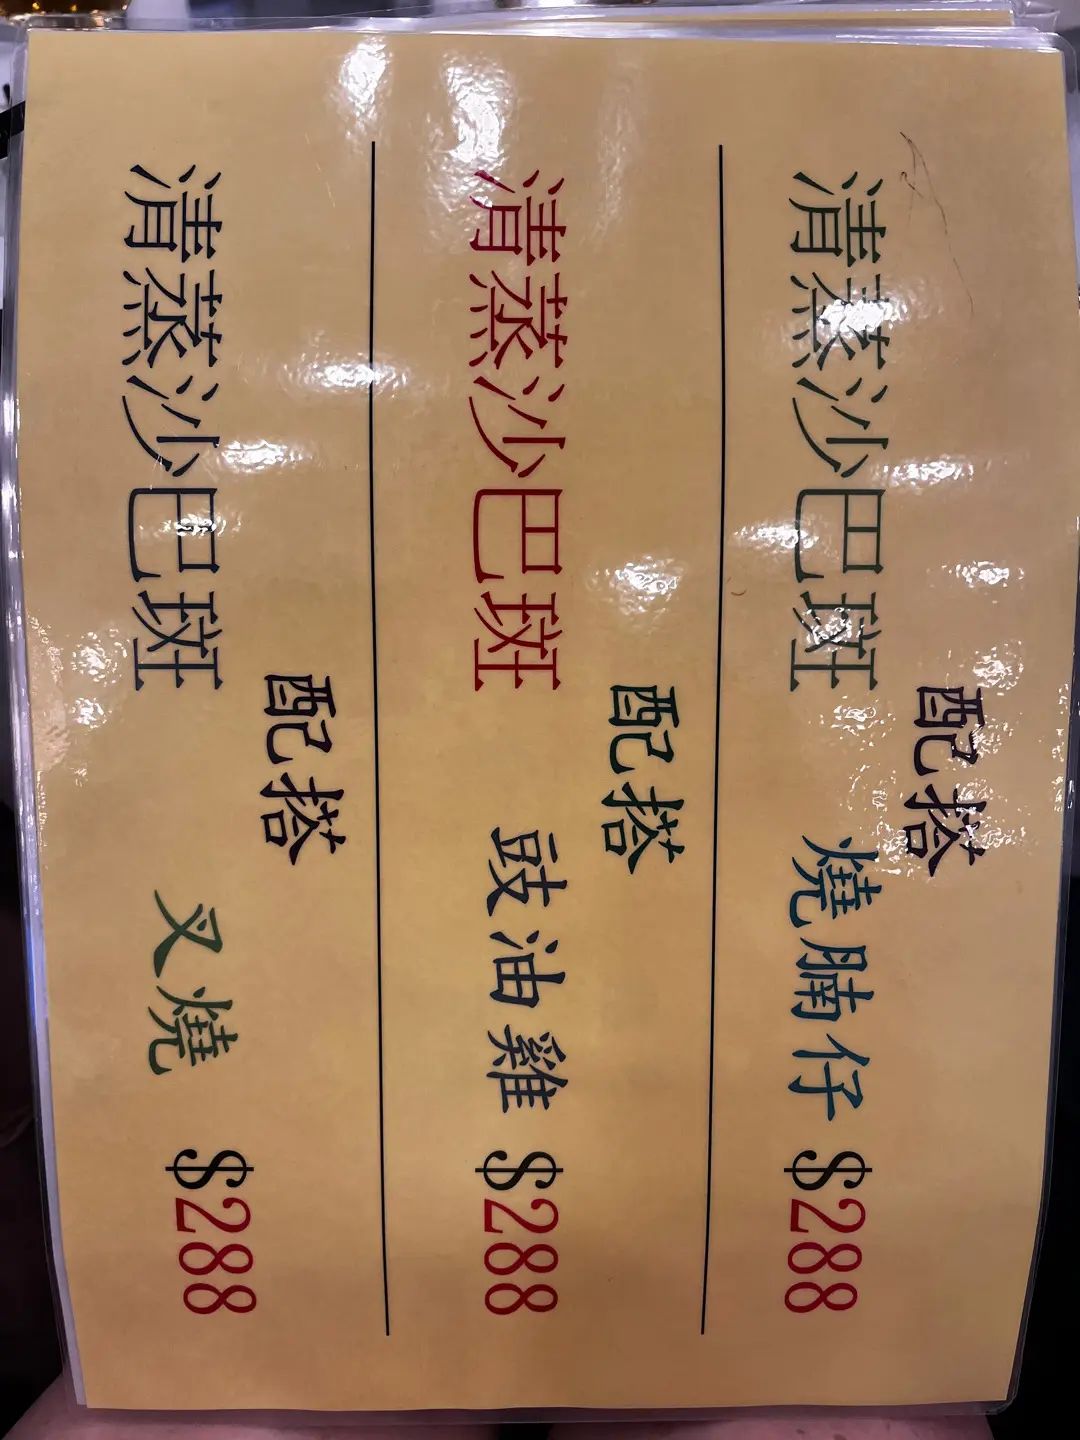 清蒸沙巴斑 配搭 燒腩仔 $288
清蒸沙巴斑 配搭 鼓油雞 $288
清蒸沙巴斑 配搭 叉燒 $288